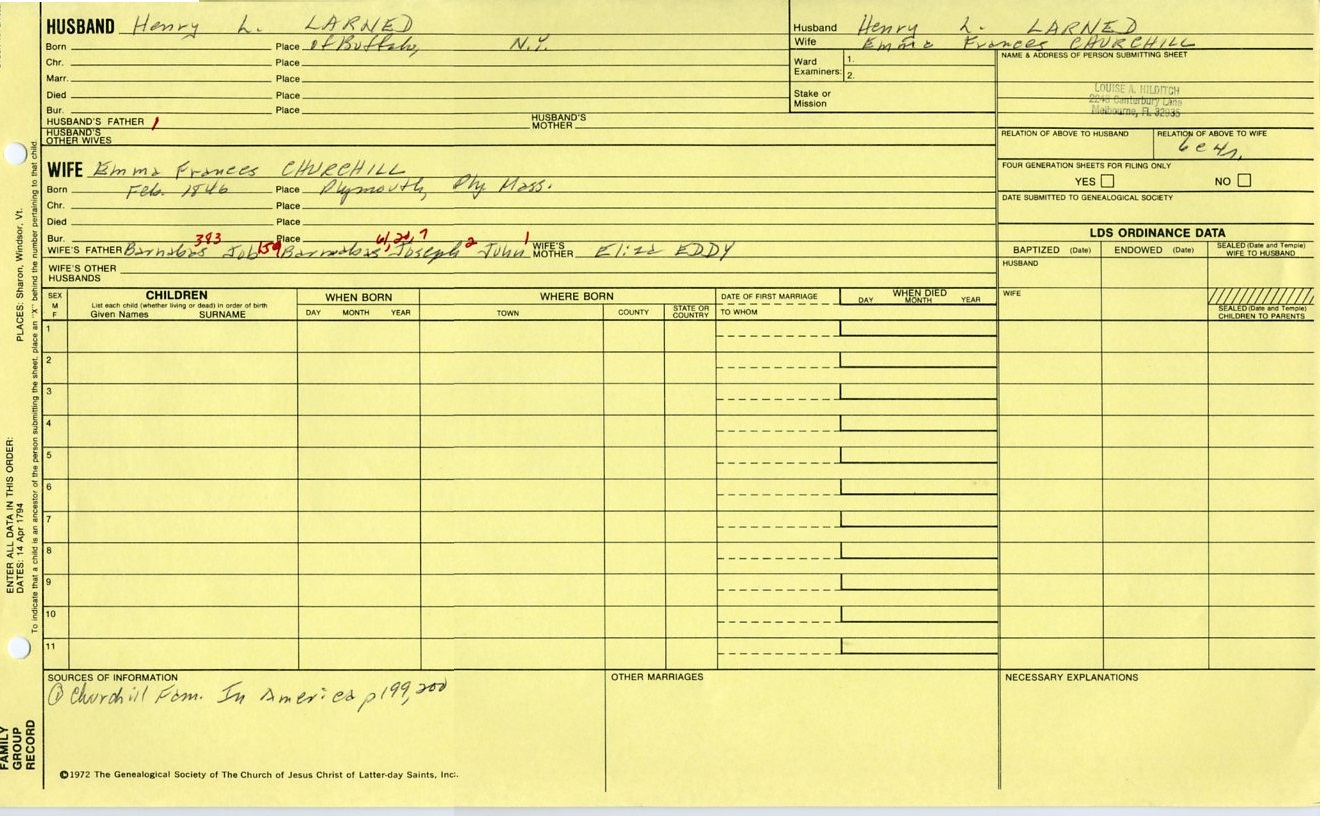 HUSBAND Henry L. LARNED
Born Place of Buffalo, N.Y.
Chr. Place
Marr. Place
Died Place
Bur. Place
HUSBAND'S FATHER 1 HUSBAND'S MOTHER
HUSBAND'S OTHER WIVES
Husband Henry L. LARNED
Wife Emma Frances CHURCHILL
Ward Examiners: 1.
2.
Stake or Mission
NAME & ADDRESS OF PERSON SUBMITTING SHEET
LOUISE A. HILDITCH
2248 Canterbury Lane
Melbourne, FL 32935
RELATION OF ABOVE TO HUSBAND RELATION OF ABOVE TO WIFE
6c4r.
FOUR GENERATION SHEETS FOR FILING ONLY
YES NO
DATE SUBMITTED TO GENEALOGICAL SOCIETY
WIFE Emma Frances CHURCHILL
Born Feb. 1846 Place Plymouth, Ply Mass.
Chr. Place
Died Place
Bur. Place
393 159 6,20,7 2 1
WIFE'S FATHER Barnabas Job Barnabas Joseph John WIFE'S MOTHER Eliza EDDY
WIFE'S OTHER HUSBANDS
LDS ORDINANCE DATA
BAPTIZED (Date) ENDOWED (Date) SEALED (Date and Temple) WIFE TO HUSBAND
HUSBAND
WIFE
SEALED (Date and Temple) CHILDREN TO PARENTS
SEX M F
CHILDREN
List each child (whether living or dead) in order of birth
Given Names SURNAME
WHEN BORN
DAY MONTH YEAR
WHERE BORN
TOWN COUNTY STATE OR COUNTRY
DATE OF FIRST MARRIAGE
TO WHOM
WHEN DIED
DAY MONTH YEAR
1
2
3
4
5
6
7
8
9
10
11
SOURCES OF INFORMATION
① Churchill Fam. In America p199,200
OTHER MARRIAGES
NECESSARY EXPLANATIONS
©1972 The Genealogical Society of The Church of Jesus Christ of Latter-day Saints, Inc.
FAMILY GROUP RECORD
ENTER ALL DATA IN THIS ORDER:
DATES: 14 Apr 1794
PLACES: Sharon, Windsor, Vt.
To indicate that a child is an ancestor of the person submitting the sheet, place an "X" behind the number pertaining to that child.